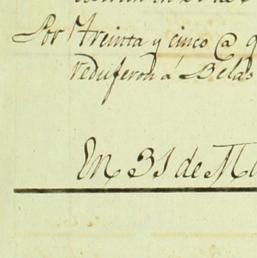 Por treinta y cinco @ q
redujeron á Belas
En 31 de Ma